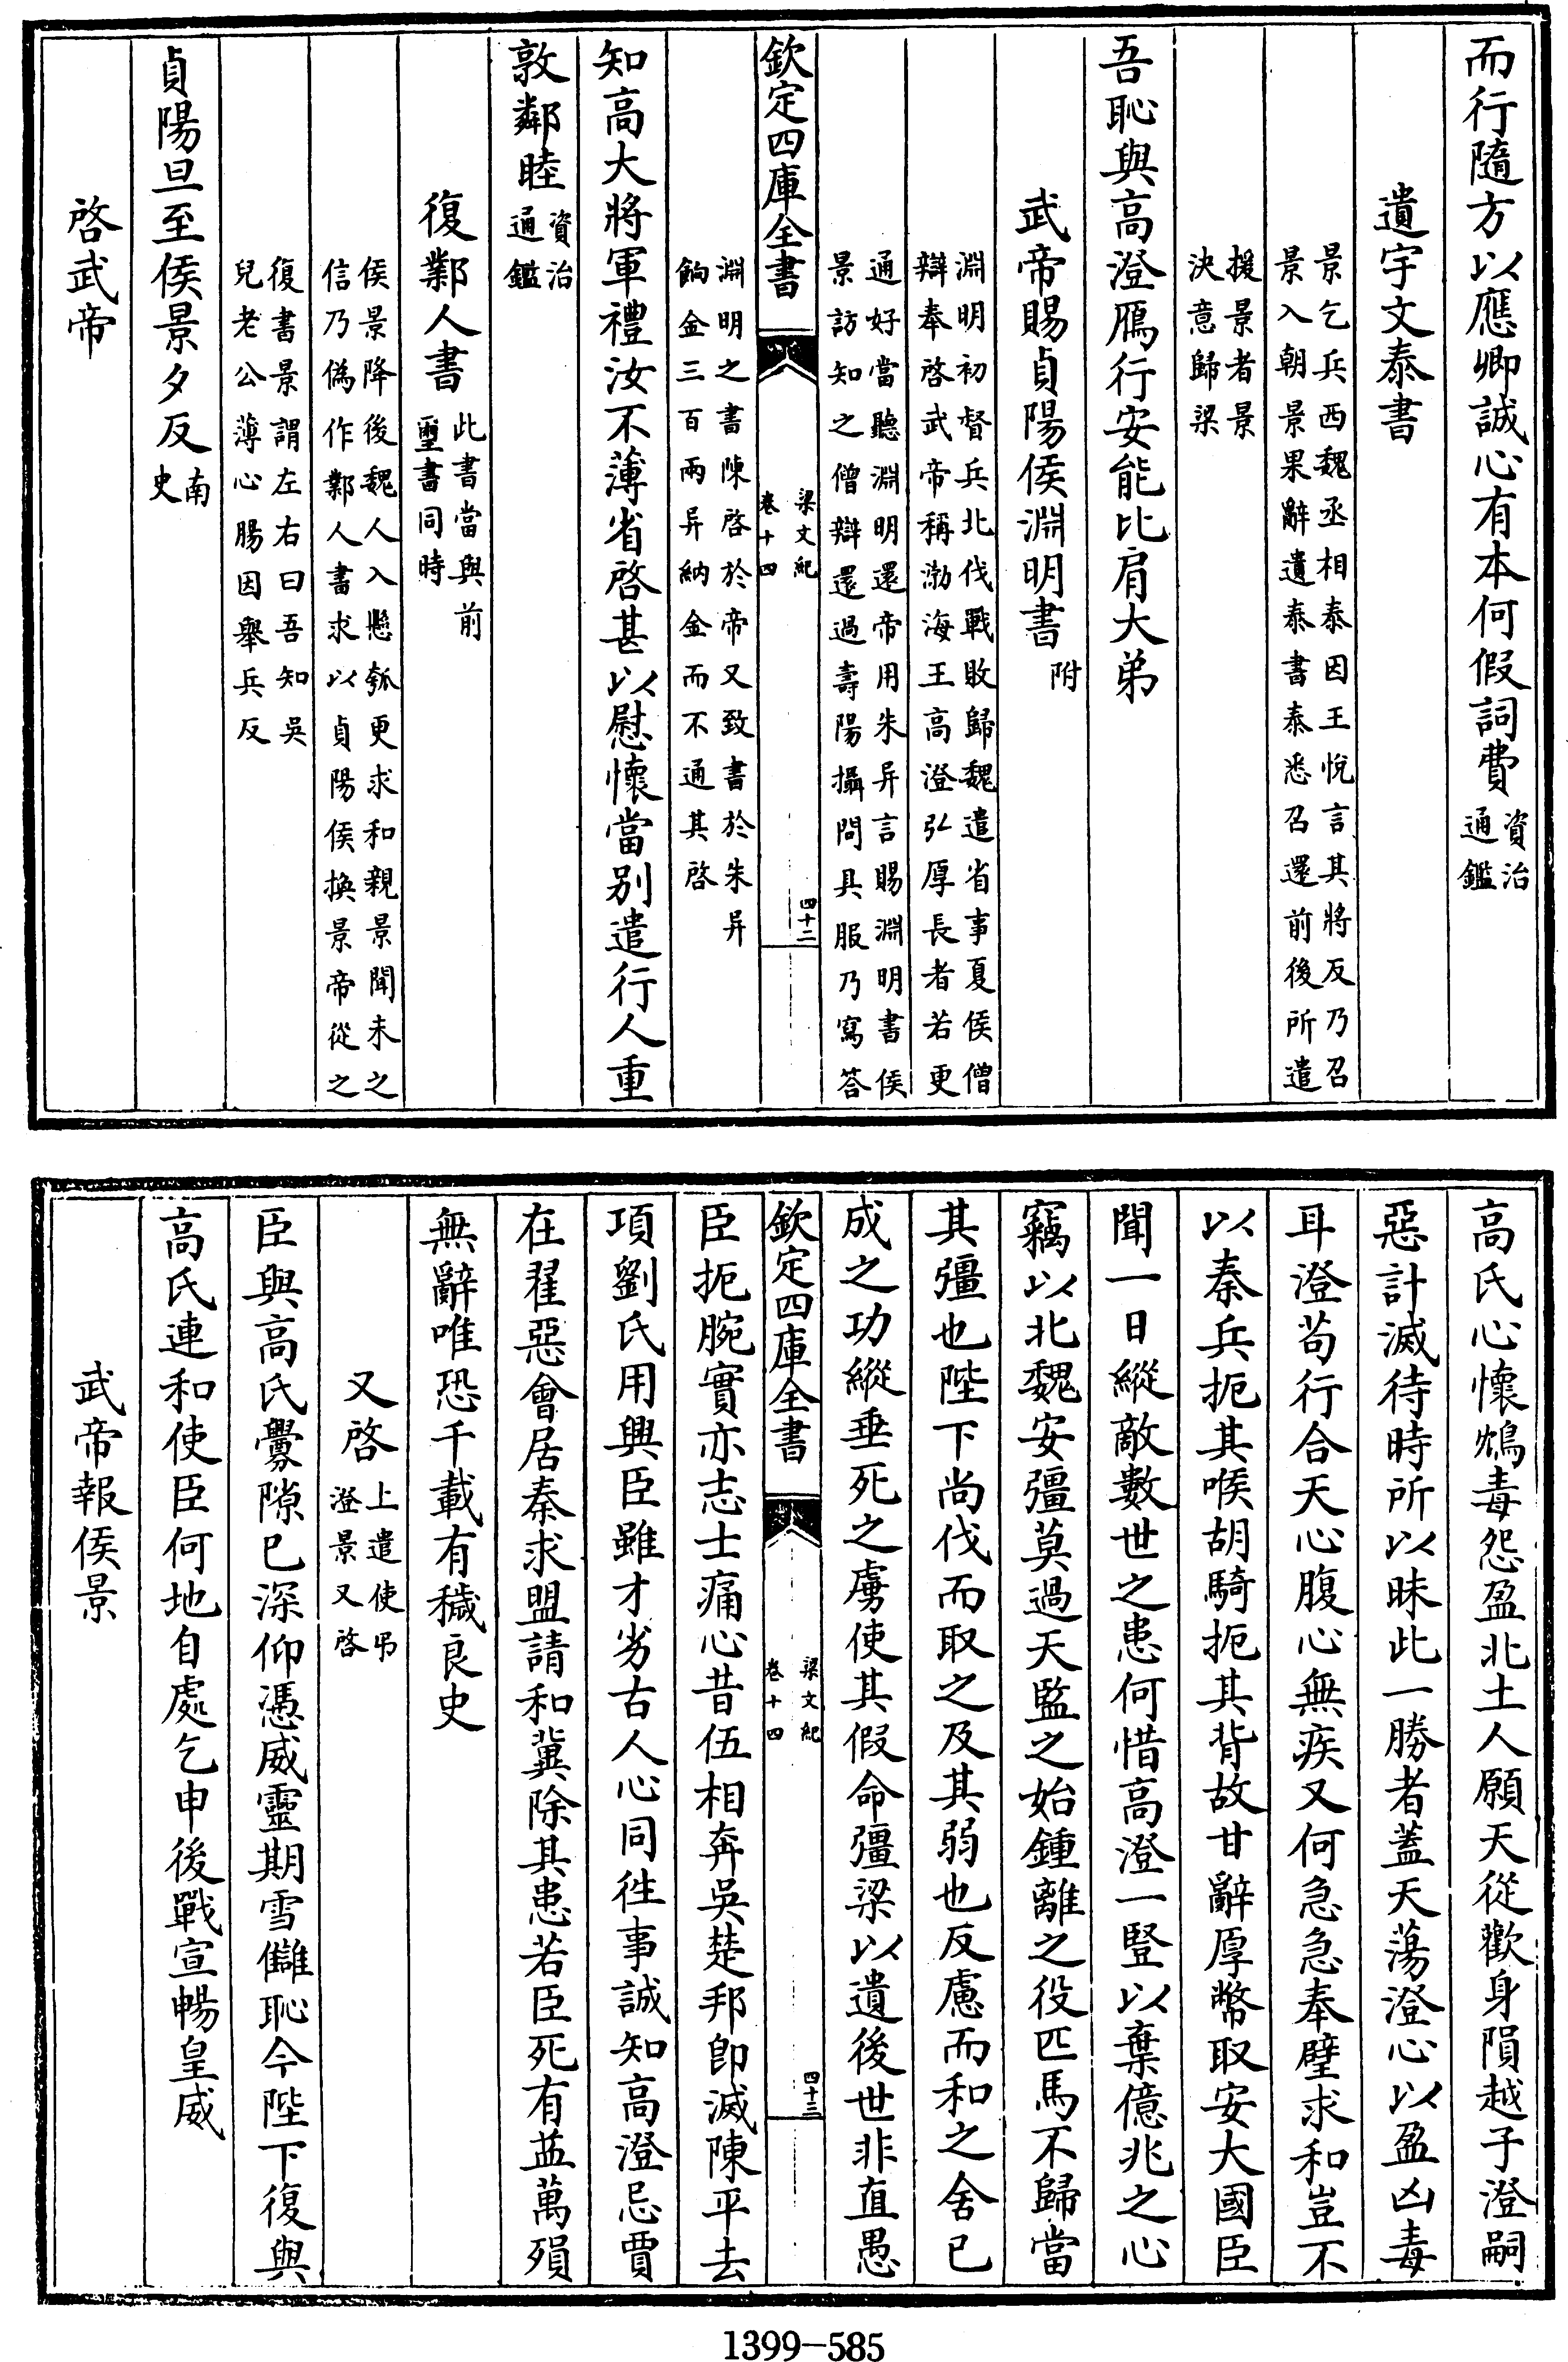 而行隨方以應卿誠心有本何假詞費資治
通鑑
遺宇文泰書
景乞兵西魏丞相泰因王悅言其將反乃召
景入朝景果辭遺泰書泰悉召還前後所遣
援景者景
決意歸梁
吾恥與高澄鴈行安能比肩大弟
武帝賜貞陽侯淵明書附
淵明初督兵北伐戰敗歸魏遣省事夏侯僧
辯奉啓武帝稱渤海王高澄弘厚長者若更
通好當聽淵明還帝用朱异言賜淵明書侯
景訪知之僧辯還過壽陽攝問具服乃寫答
欽定四庫全書
梁文紀
卷十四
四十二
淵明之書陳啓於帝又致書於朱异
餉金三百兩异納金而不通其啓
知高大將軍禮汝不薄省啓甚以慰懷當别遣行人重
敦鄰睦資治
通鑑
復鄴人書此書當與前
璽書同時
侯景降後魏人入懸瓠更求和親景聞未之
信乃僞作鄴人書求以貞陽侯換景帝從之
復書景謂左右曰吾知吳
兒老公薄心腸因舉兵反
貞陽旦至侯景夕反南
史
啓武帝
高氏心懷鴆毒怨盈北土人願天從歡身隕越子澄嗣
惡計滅待時所以昧此一勝者蓋天蕩澄心以盈凶毒
耳澄苟行合天心腹心無疾又何急急奉璧求和豈不
以秦兵扼其喉胡騎扼其背故甘辭厚幣取安大國臣
聞一日縱敵數世之患何惜高澄一豎以棄億兆之心
竊以北魏安彊莫過天監之始鍾離之役匹馬不歸當
其彊也陛下尚伐而取之及其弱也反慮而和之舍已
成之功縱垂死之虜使其假命彊梁以遺後世非直愚
欽定四庫全書
梁文紀
卷十四
四十三
臣扼腕實亦志士痛心昔伍相奔吳楚邦卽滅陳平去
項劉氏用興臣雖才劣古人心同徃事誠知高澄忌賈
在翟惡會居秦求盟請和冀除其患若臣死有益萬殞
無辭唯恐千載有穢良史
又啓上遣使弔
澄景又啓
臣與高氏釁隙已深仰憑威靈期雪讎恥今陛下復與
高氏連和使臣何地自處乞申後戰宣暢皇威
武帝報侯景
1399-585